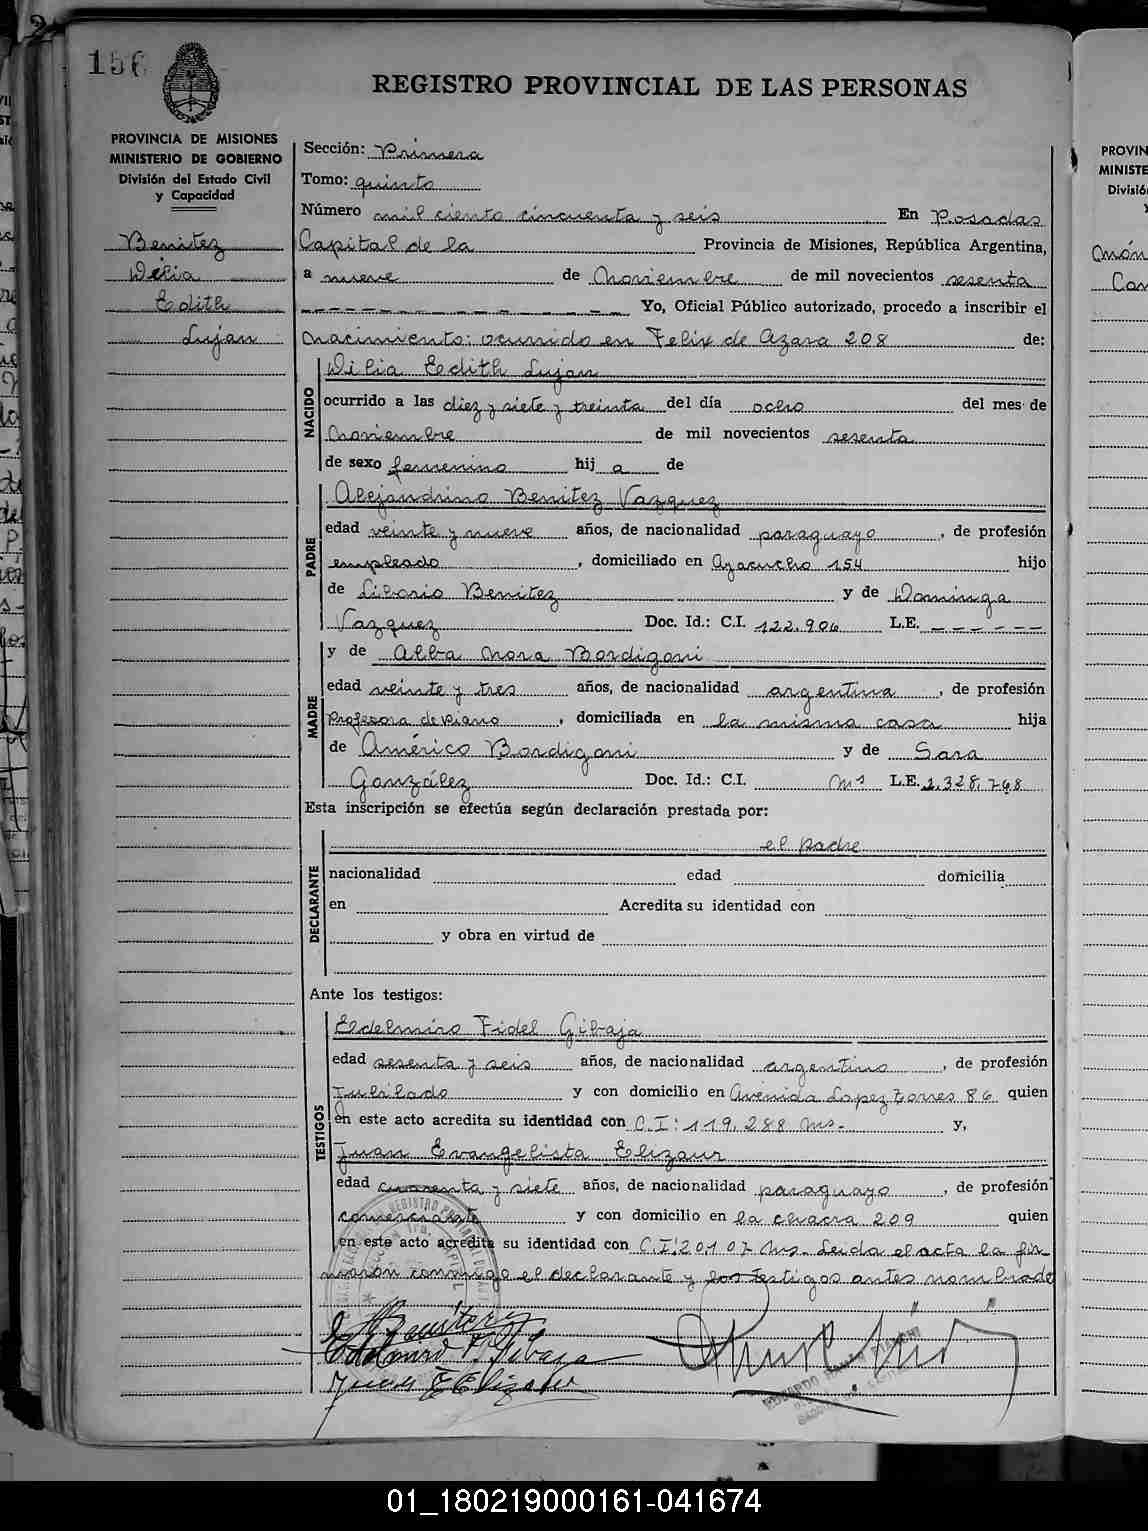 156
REGISTRO PROVINCIAL DE LAS PERSONAS
PROVINCIA DE MISIONES
MINISTERIO DE GOBIERNO
División del Estado Civil
y Capacidad
Benitez
Dilia
Edith
Lujan
Sección: Primera
Tomo: quinto
Número mil ciento cincuenta y seis En Posadas
Capital de la Provincia de Misiones, República Argentina,
a nueve de Noviembre de mil novecientos sesenta
Yo, Oficial Público autorizado, procedo a inscribir el
Nacimiento: ocurrido en Felix de Azara 208 de:
NACIDO
Dilia Edith Lujan
ocurrido a las diez y siete y treinta del día ocho del mes de
Noviembre de mil novecientos sesenta
de sexo femenino hij a de
PADRE
Alejandrino Benitez Vazquez
edad veinte y nueve años, de nacionalidad paraguayo, de profesión
empleado, domiciliado en Ayacucho 154 hijo
de Liborio Benitez y de Dominga
Vazquez Doc. Id.: C.I. 122.906 L.E.
MADRE
y de Alba Nora Bordigoni
edad veinte y tres años, de nacionalidad argentina, de profesión
Profesora de Piano, domiciliada en la misma casa hija
de Américo Bordigoni y de Sara
González Doc. Id.: C.I. Ms L.E. 2.328.768
Esta inscripción se efectúa según declaración prestada por:
DECLARANTE
el padre
nacionalidad edad domicilia
en Acredita su identidad con
y obra en virtud de
Ante los testigos:
TESTIGOS
Edelmiro Fidel Gibaja
edad sesenta y seis años, de nacionalidad argentino, de profesión
Jubilado y con domicilio en Avenida Lopez Torres 86 quien
en este acto acredita su identidad con C.I: 119.288 Ms. y,
Juan Evangelista Elizaur
edad cuarenta y siete años, de nacionalidad paraguayo, de profesión
comerciante y con domicilio en la chacra 209 quien
en este acto acredita su identidad con C.I: 20107 Ms. Leida el acta la fir
maron conmigo el declarante y los testigos antes nombrado
01_180219000161-041674